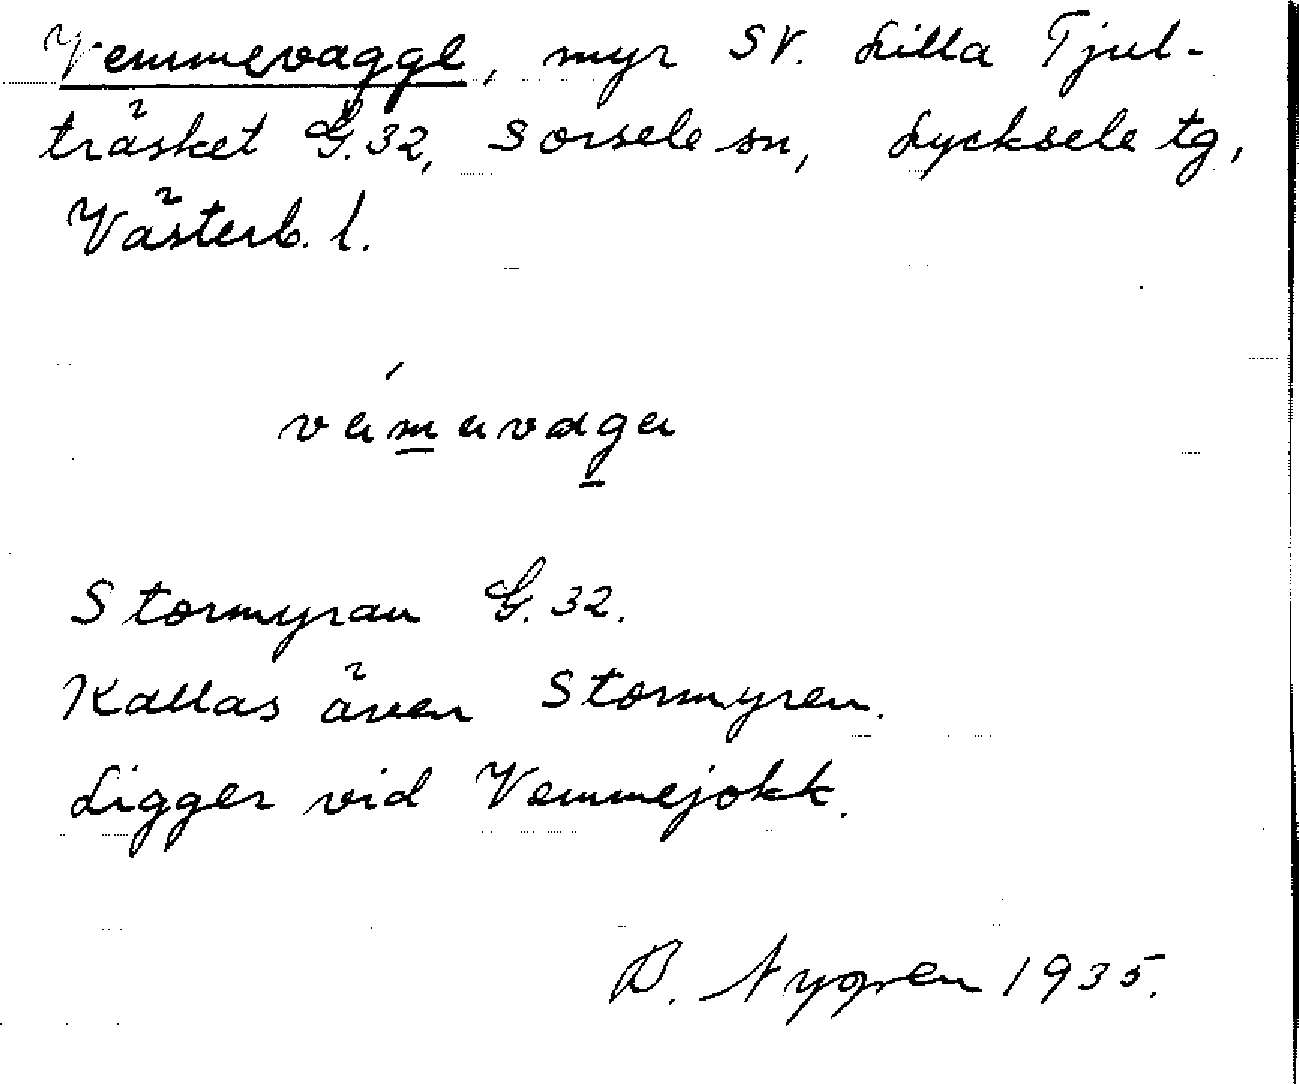 Vemmevagge, myr SV. Lilla Tjul-
träsket G.32, Sorsele sn, Lycksele tg,
Västerb. l.
Stormyran G.32.
Kallas även Stormyren.
Ligger vid Vemmejokk.
B. Nygren 1935.